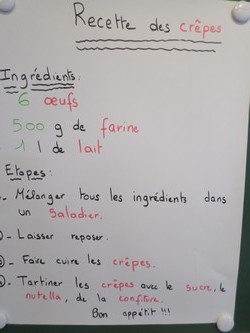 Recette des crêpes
Ingrédients:
6 œufs
500 g de farine
1 l de lait
Etapes:
- Mélanger tous les ingrédients dans
un saladier.
- Laisser reposer.
- Faire cuire les crêpes.
- Tartiner les crêpes avec le sucre, le
nutella, de la confiture.
Bon appétit!!!